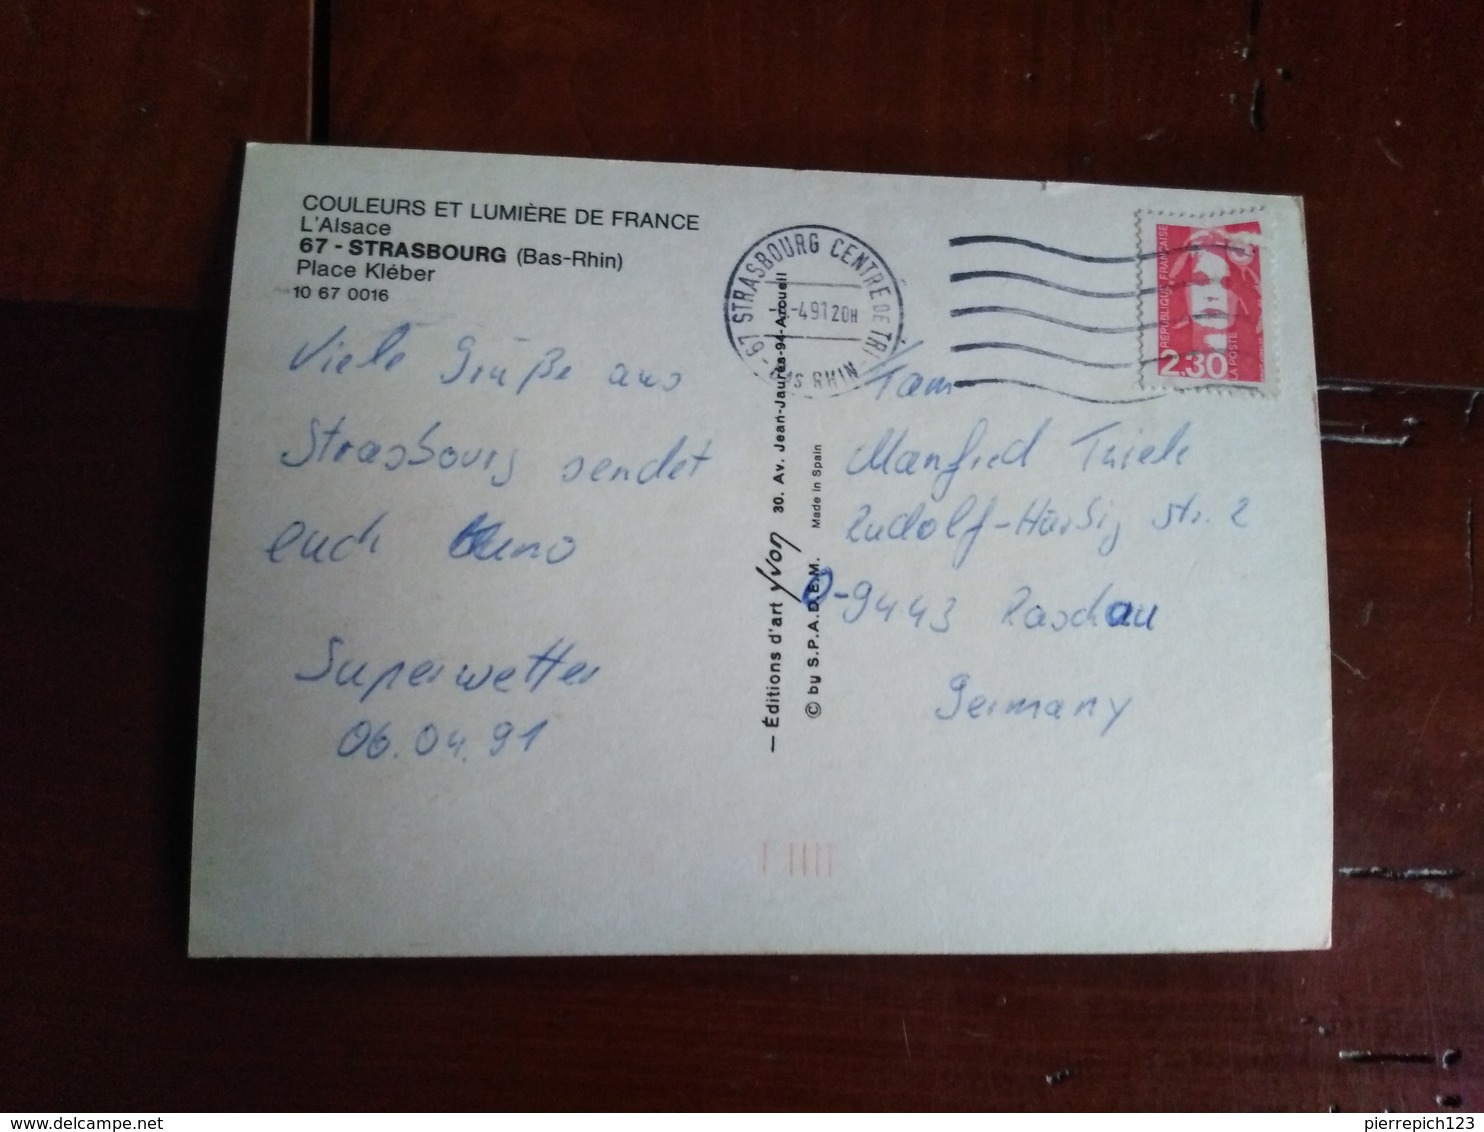 COULEURS ET LUMIÈRE DE FRANCE
L'Alsace
67 - STRASBOURG (Bas-Rhin)
Place Kléber
10 67 0016
Viele Grüße aus
Strasbourg sendet
euch
Superwetter
06.04.91
67 STRASBOURG CENTRE DE TRI
-4 91 20H
RHIN
— Éditions d'art Yvon 30. Av. Jean-Jaurès-94-Arcueil
© by S.P.A.D.E.M. Made in Spain
RÉPUBLIQUE FRANÇAISE
2,30
LA POSTE
Fam
Manfred Thiele
Rudolf-Harbig Str. 2
O-9443 Raschau
Germany
pierrepich123